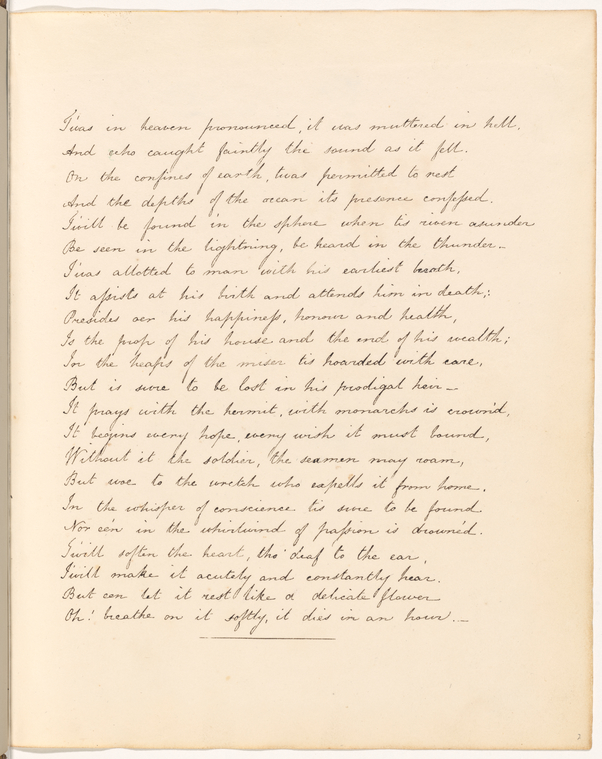 T'was in heaven pronounced, it was muttered in hell.
And who caught faintly the sound as it fell.
On the confines of earth, twas permitted to rest
And the depths of the ocean its presence confessed.
T'will be found in the sphere when tis riven asunder
Be seen in the lightning, be heard in the thunder –
T'was allotted to man with his earliest breath,
It assists at his birth and attends him in death;
Presides oer his happiness, honour and health,
Is the prop of his house and the end of his wealth;
In the heaps of the miser tis hoarded with care,
But is sure to be lost in his prodigal heir –
It prays with the hermit, with monarchs is crown'd,
It begins every hope, every wish it must bound,
Without it the soldier, the seamen may roam,
But woe to the wretch who expells it from home.
In the whisper of conscience tis sure to be found
Nor e'en in the whirlwind of passion is drown'd.
T'will soften the heart, tho' deaf to the ear,
T'will make it acutely and constantly hear.
But een let it rest like a delicate flower
Oh! breathe on it softly, it dies in an hour. –
7